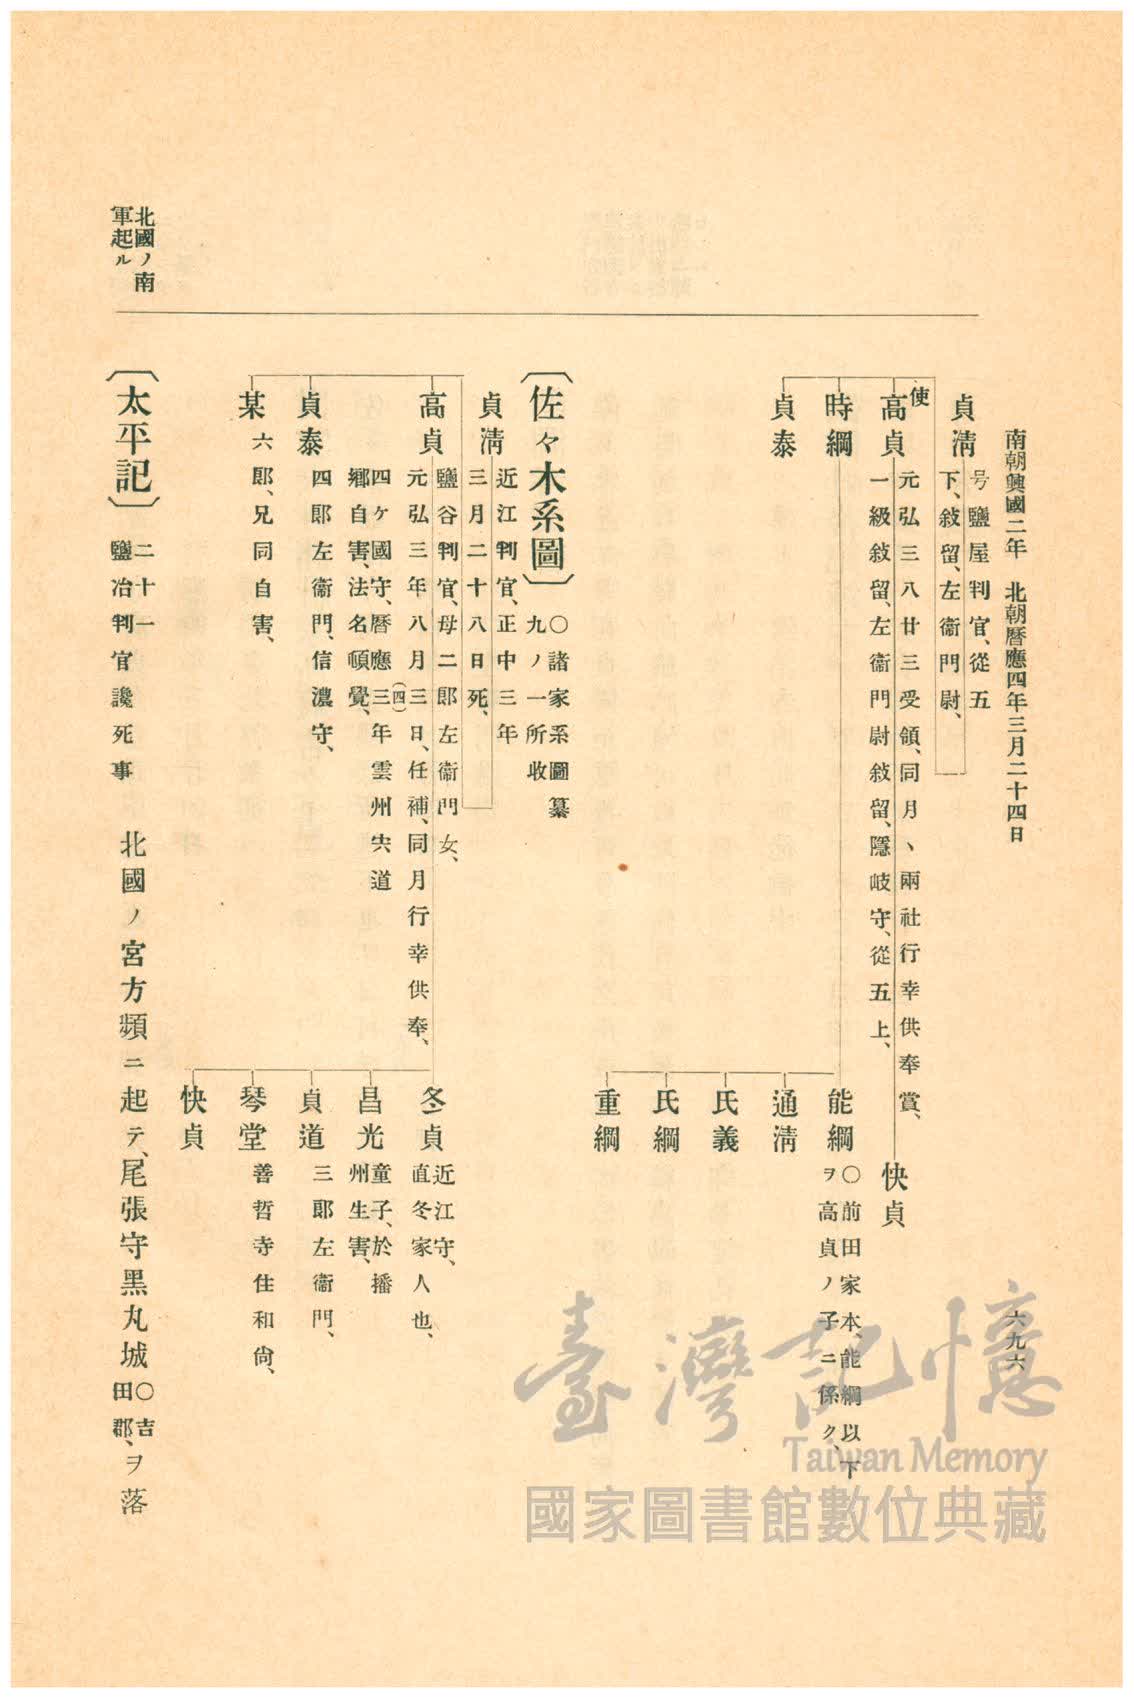 南朝興國二年　北朝曆應四年三月二十四日
六九六
貞淸
号鹽屋判官、從五
下、敍留、左衞門尉、
使
高貞
元弘三八廿三受領、同月丶兩社行幸供奉賞、
一級敍留、左衞門尉敍留、隱岐守、從五上、
快貞
時綱
貞泰
能綱
〇前田家本、能綱以下
ヲ高貞ノ子ニ係ク、
通淸
氏義
氏綱
重綱
〔佐々木系圖〕
〇諸家系圖纂
九ノ一所收
貞淸
近江判官、正中三年
三月二十八日死、
高貞
鹽谷判官、母二郞左衞門女、
元弘三年八月三日、任補、同月行幸供奉、
四ヶ國守、曆應三(四)年雲州宍道
鄕自害、法名頓覺、
貞泰
四郞左衞門、信濃守、
某
六郞、兄同自害、
冬貞
近江守、
直冬家人也、
昌光
童子、於播
州生害、
貞道
三郞左衞門、
琴堂
善哲寺住和尙、
快貞
北國ノ南
軍起ル
〔太平記〕
二十一
鹽冶判官讒死事
北國ノ宮方頻ニ起テ、尾張守黑丸城
〇吉
田郡、
ヲ落
臺灣記憶
Taiwan Memory
國家圖書館數位典藏